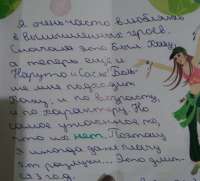 Я очень часто влюбляюсь
в вымышленных героев.
Сначала это был Каку,
а теперь ещё и
Наруто и Саске. Боль-
ше мне подходит
Каку. и по возрасту,
и по характеру. Но
самое ужасное то,
что их нет. Поэтому
я иногда даже плачу
Это длит-